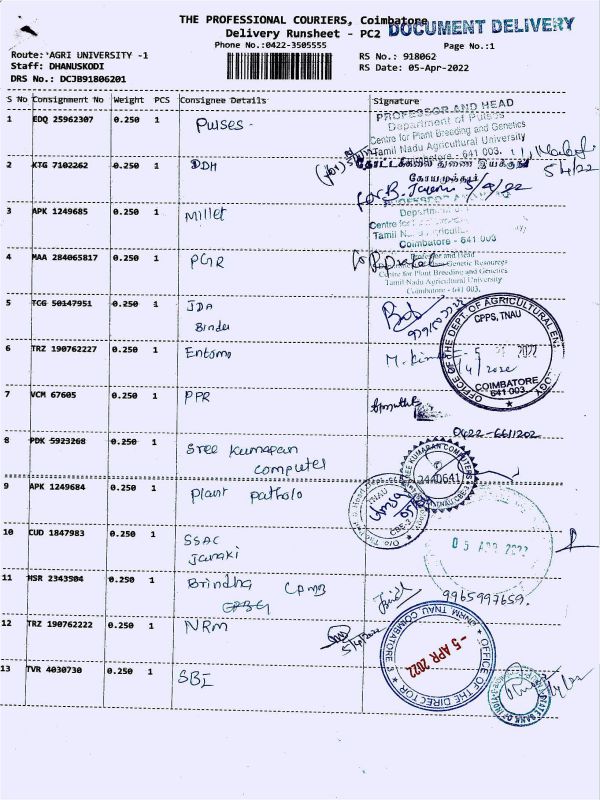 THE PROFESSIONAL COURIERS, Coimbatore
DOCUMENT DELIVERY
Delivery Runsheet - PC2
Phone No.:0422-3505555
Page No.:1
Route: 'AGRI UNIVERSITY -1
RS No.: 918062
Staff: DHANUSKODI
RS Date: 05-Apr-2022
DRS No.: DCJB91806201
S No Consignment No Weight PCS Consignee Details Signature
1 EDQ 25962307 0.250 1 Pulses -
PROFESSOR AND HEAD
Department of Pulses
Centre for Plant Breeding and Genetics
Tamil Nadu Agricultural University
Coimbatore - 641 003.
2 KTG 7102262 0.250 1 DDH
தோட்டக்கலை துணை இயக்குநர்
கோயமுத்தூர்
5/4/22
3 APK 1249685 0.250 1 Millet
Centre for
Tamil N
Coimbatore - 641 003
4 MAA 284065817 0.250 1 PGR
Professor and Head
Genetic Resources
Centre for Plant Breeding and Genetics
Tamil Nadu Agricultural University
Coimbatore - 641 003.
5 TCG 50147951 0.250 1 JDA
Bindu
OFFICE OF THE DEPT. OF AGRICULTURAL
CPPS, TNAU
COIMBATORE
641 003
6 TRZ 190762227 0.250 1 Entomo
5 2022
7 VCM 67605 0.250 1 PPR
0422-6611202
8 PDK 5923268 0.250 1 Sree Kumaran
Computer
SREE KUMARAN COMPUTERS
2440641
9 APK 1249684 0.250 1 Plant patholo
TNAU
CBE-3
10 CUD 1847983 0.250 1 SSAC
Janaki
05 APR 2022
11 HSR 2343504 0.250 1 Brindha CPMB
9965997659.
12 TRZ 190762222 0.250 1 NRM
5/4/2022
OFFICE OF THE DIRECTOR
NRM TNAU COIMBATORE 3
-5 APR 2022
13 TVR 4030730 0.250 1 SBI